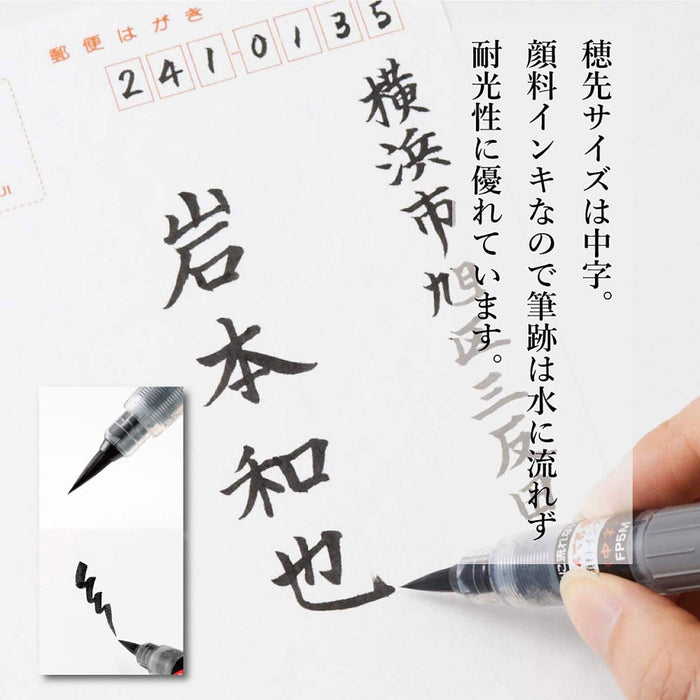 郵便はがき
2410135
横浜市旭区三反田
岩本和也
穂先サイズは中字。
顔料インキなので筆跡は水に流れず
耐光性に優れています。
中字
FP5M
UI